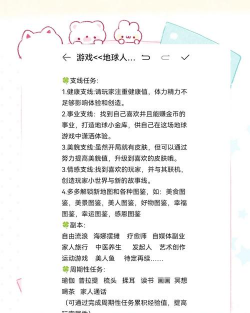 游戏<<地球人...
🍀支线任务:
1.健康支线:请玩家注重健康值，体力精力不
足够影响体验和创造。
2.事业支线: 找到自己喜欢并且能赚金币的
事业，打造地球小金库，供自己在这场地球
游戏中潇洒体验。
3.美貌支线:虽然开局就有皮肤，但可以通过
努力提高美貌值，升级到喜欢的皮肤哦。
3.情感支线:找到喜欢的玩家，并与其联机，
创造玩家小世界与新的故事线。
4.多多解锁新地图和各种图鉴，如：美食图
鉴，美景图鉴，美人图鉴，好物图鉴，幸福
图鉴，幸运图鉴，感恩图鉴
🍀副本:
自由流浪 海哪摆摊 疗愈师 自媒体副业
家人旅行 中医养生 发起人 艺术创作
运动游戏 美人鱼 待定再续......
🍀周期性任务:
瑜伽 普拉提 梳头 揉耳 读书 画画 冥想
喝茶 家人通话
(可通过完成周期性任务累积经验值，提高